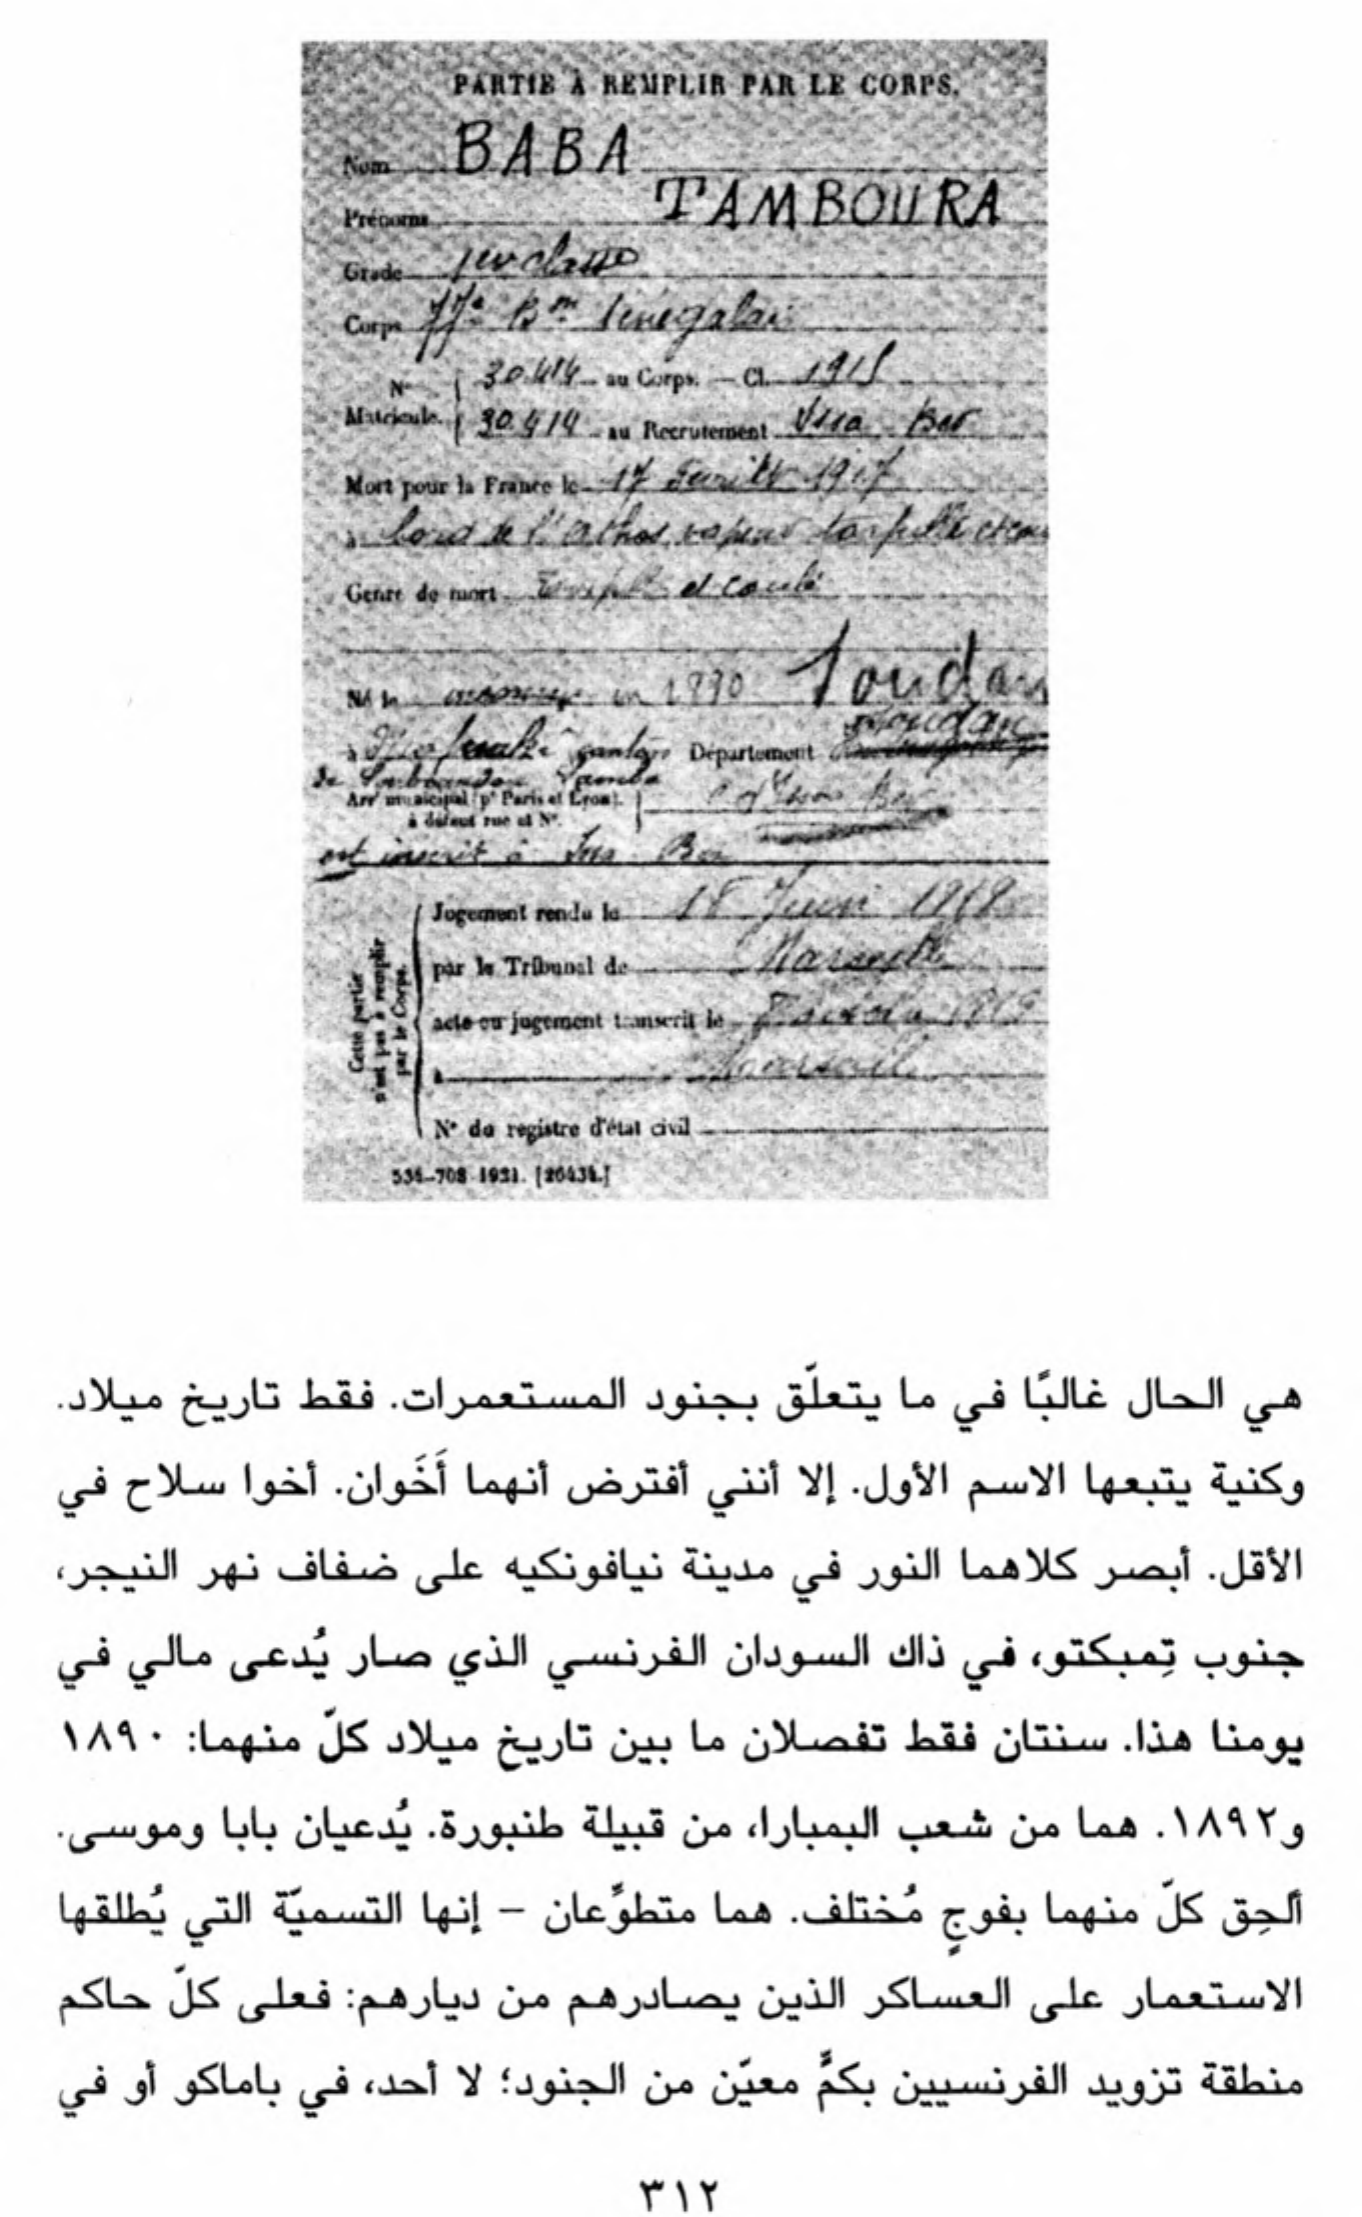 PARTIE À REMPLIR PAR LE CORPS.
Nom BABA
Prénoms TAMBOURA
Grade 1ère classe
Corps 77e Bon Sénégalais
N° Matricule. 30.414 au Corps. — Cl. 1915
30.414 au Recrutement Issa Ber
Mort pour la France le 17 février 1917
à bord de l'Athos vapeur torpillé et cou
Genre de mort torpillé et coulé
Né le en 1890 Soudan
à canton Département Soudan
de
Arrt municipal (pr Paris et Lyon), à défaut rue et N°. Issa Ber
est inscrit à Issa Ber
Cette partie n'est pas à remplir par le Corps.
Jugement rendu le 18 Juin 1918
par le Tribunal de Marseille
acte ou jugement transcrit le
à Marseille
N° du registre d'état civil
534-708 1921. [26434.]
هي الحال غالبًا في ما يتعلّق بجنود المستعمرات. فقط تاريخ ميلاد.
وكنية يتبعها الاسم الأول. إلا أنني أفترض أنهما أَخَوان. أخوا سلاح في
الأقل. أبصر كلاهما النور في مدينة نيافونكيه على ضفاف نهر النيجر،
جنوب تِمبكتو، في ذاك السودان الفرنسي الذي صار يُدعى مالي في
يومنا هذا. سنتان فقط تفصلان ما بين تاريخ ميلاد كلّ منهما: ١٨٩٠
و١٨٩٢. هما من شعب البمبارا، من قبيلة طنبورة. يُدعيان بابا وموسى.
ألحِق كلّ منهما بفوجٍ مُختلف. هما متطوِّعان – إنها التسميّة التي يُطلقها
الاستعمار على العساكر الذين يصادرهم من ديارهم: فعلى كلّ حاكم
منطقة تزويد الفرنسيين بكمٍّ معيّن من الجنود؛ لا أحد، في باماكو أو في
٣١٢